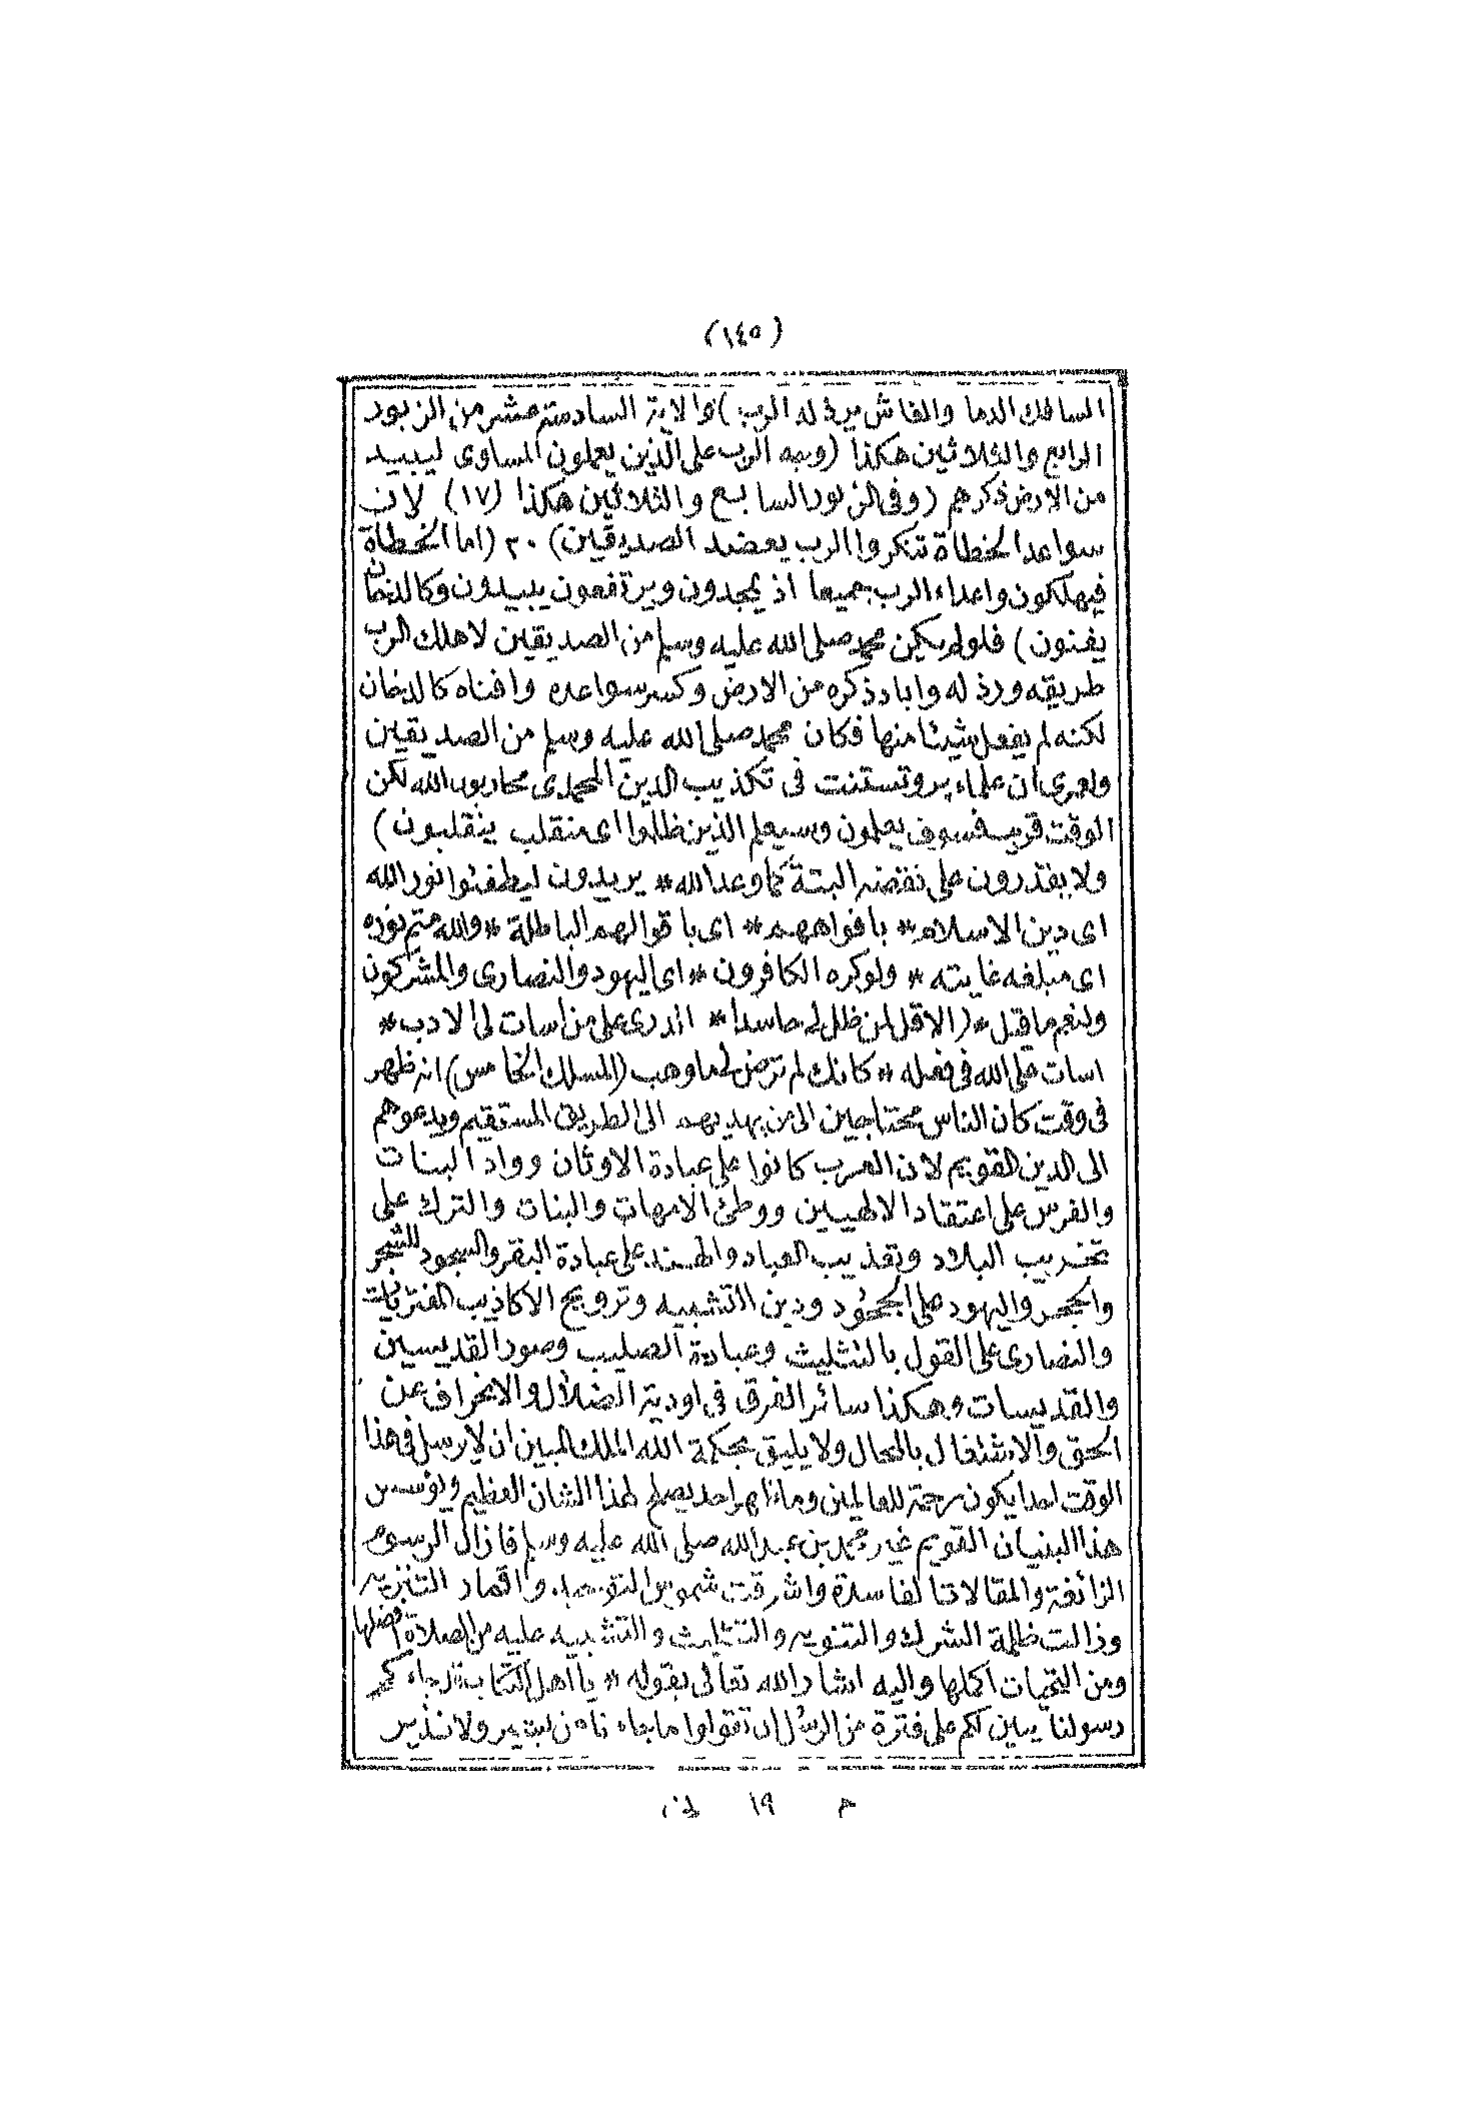 (١٤٥)
السافك الدما والغاش يرذله الرب) والاية السادسة عشر من الزبور
الرابع والثلاثين هكذا (وجه الرب على الذين يعملون المساوى ليبيد
من الارض ذكرهم (وفى الزبور السابع والثلاثين هكذا (١٧) لان
سواعد الخطاة تنكر والرب يعضد الصديقين) ٢٠ (اما الخطاة
فيهلكون واعداء الرب جميعا اذ يمجدون ويرتفعون يبيدون وكالدخان
يفنون) فلو لم يكن محمد صلى الله عليه وسلم من الصديقين لاهلك الرب
طريقه ورذله واباد ذكره من الارض وكسر سواعده وافناه كالدخان
لكنه لم يفعل شيئا منها فكان محمد صلى الله عليه وسلم من الصديقين
ولعمرى ان علماء بروتستنت فى تكذيب الدين المحمدى محاربون الله لكن
الوقت قريب فسوف يعلمون وسيعلم الذين ظلموا اى منقلب ينقلبون)
ولا يقدرون على نقضه البتة كما وعد الله * يريدون ليطفئوا نور الله
اى دين الاسلام * بافواههم * اى باقوالهم الباطلة * والله متم نوره
اى مبلغه غايته * ولو كره الكافرون * اى اليهود والنصارى والمشركون
ولنعم ما قيل * (الا قل لمن ظل لى حاسدا * اتدرى على من اسات لى الادب *
اسات على الله فى فعله * كانك لم ترض لى ما وهب (المسلك الخامس) انه ظهر
فى وقت كان الناس محتاجين الى من يهديهم الى الطريق المستقيم ويدعوهم
الى الدين القويم لان العرب كانوا على عبادة الاوثان وواد البنات
والفرس على اعتقاد الالهيين ووطئ الامهات والبنات والترك على
تخريب البلاد وتعذيب العباد والهند على عبادة البقر والسجود للشجر
والحجر واليهود على الجحود ودين التشبيه وترويج الاكاذيب المفتريات
والنصارى على القول بالتثليث وعبادة الصليب وصور القديسين
والقديسات وهكذا سائر الفرق فى اودية الضلال والانحراف عن
الحق والاشتغال بالمحال ولا يليق بحكمة الله الملك المبين ان لا يرسل فى هذا
الوقت احدا يكون رحمة للعالمين وما ظهر احد يصلح لهذا الشان العظيم ويؤسس
هذا البنيان القويم غير محمد بن عبد الله صلى الله عليه وسلم فازال الرسوم
الزائغة والمقالات الفاسدة واشرقت شموس التوحيد واقمار التنزيه
وزالت ظلمة الشرك والتنويه والتثليث والتشبيه عليه من الصلاة افضلها
ومن التحيات اكملها واليه اشار الله تعالى بقوله * يا اهل الكتاب قد جاءكم
رسولنا يبين لكم على فترة من الرسل ان تقولوا ما جاءنا من بشير ولا نذير
م ١٩